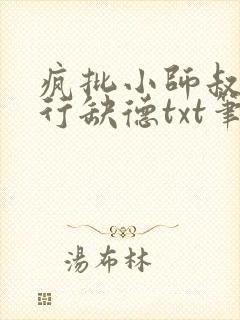 疯批小师叔
行缺德txt笔
湯布林